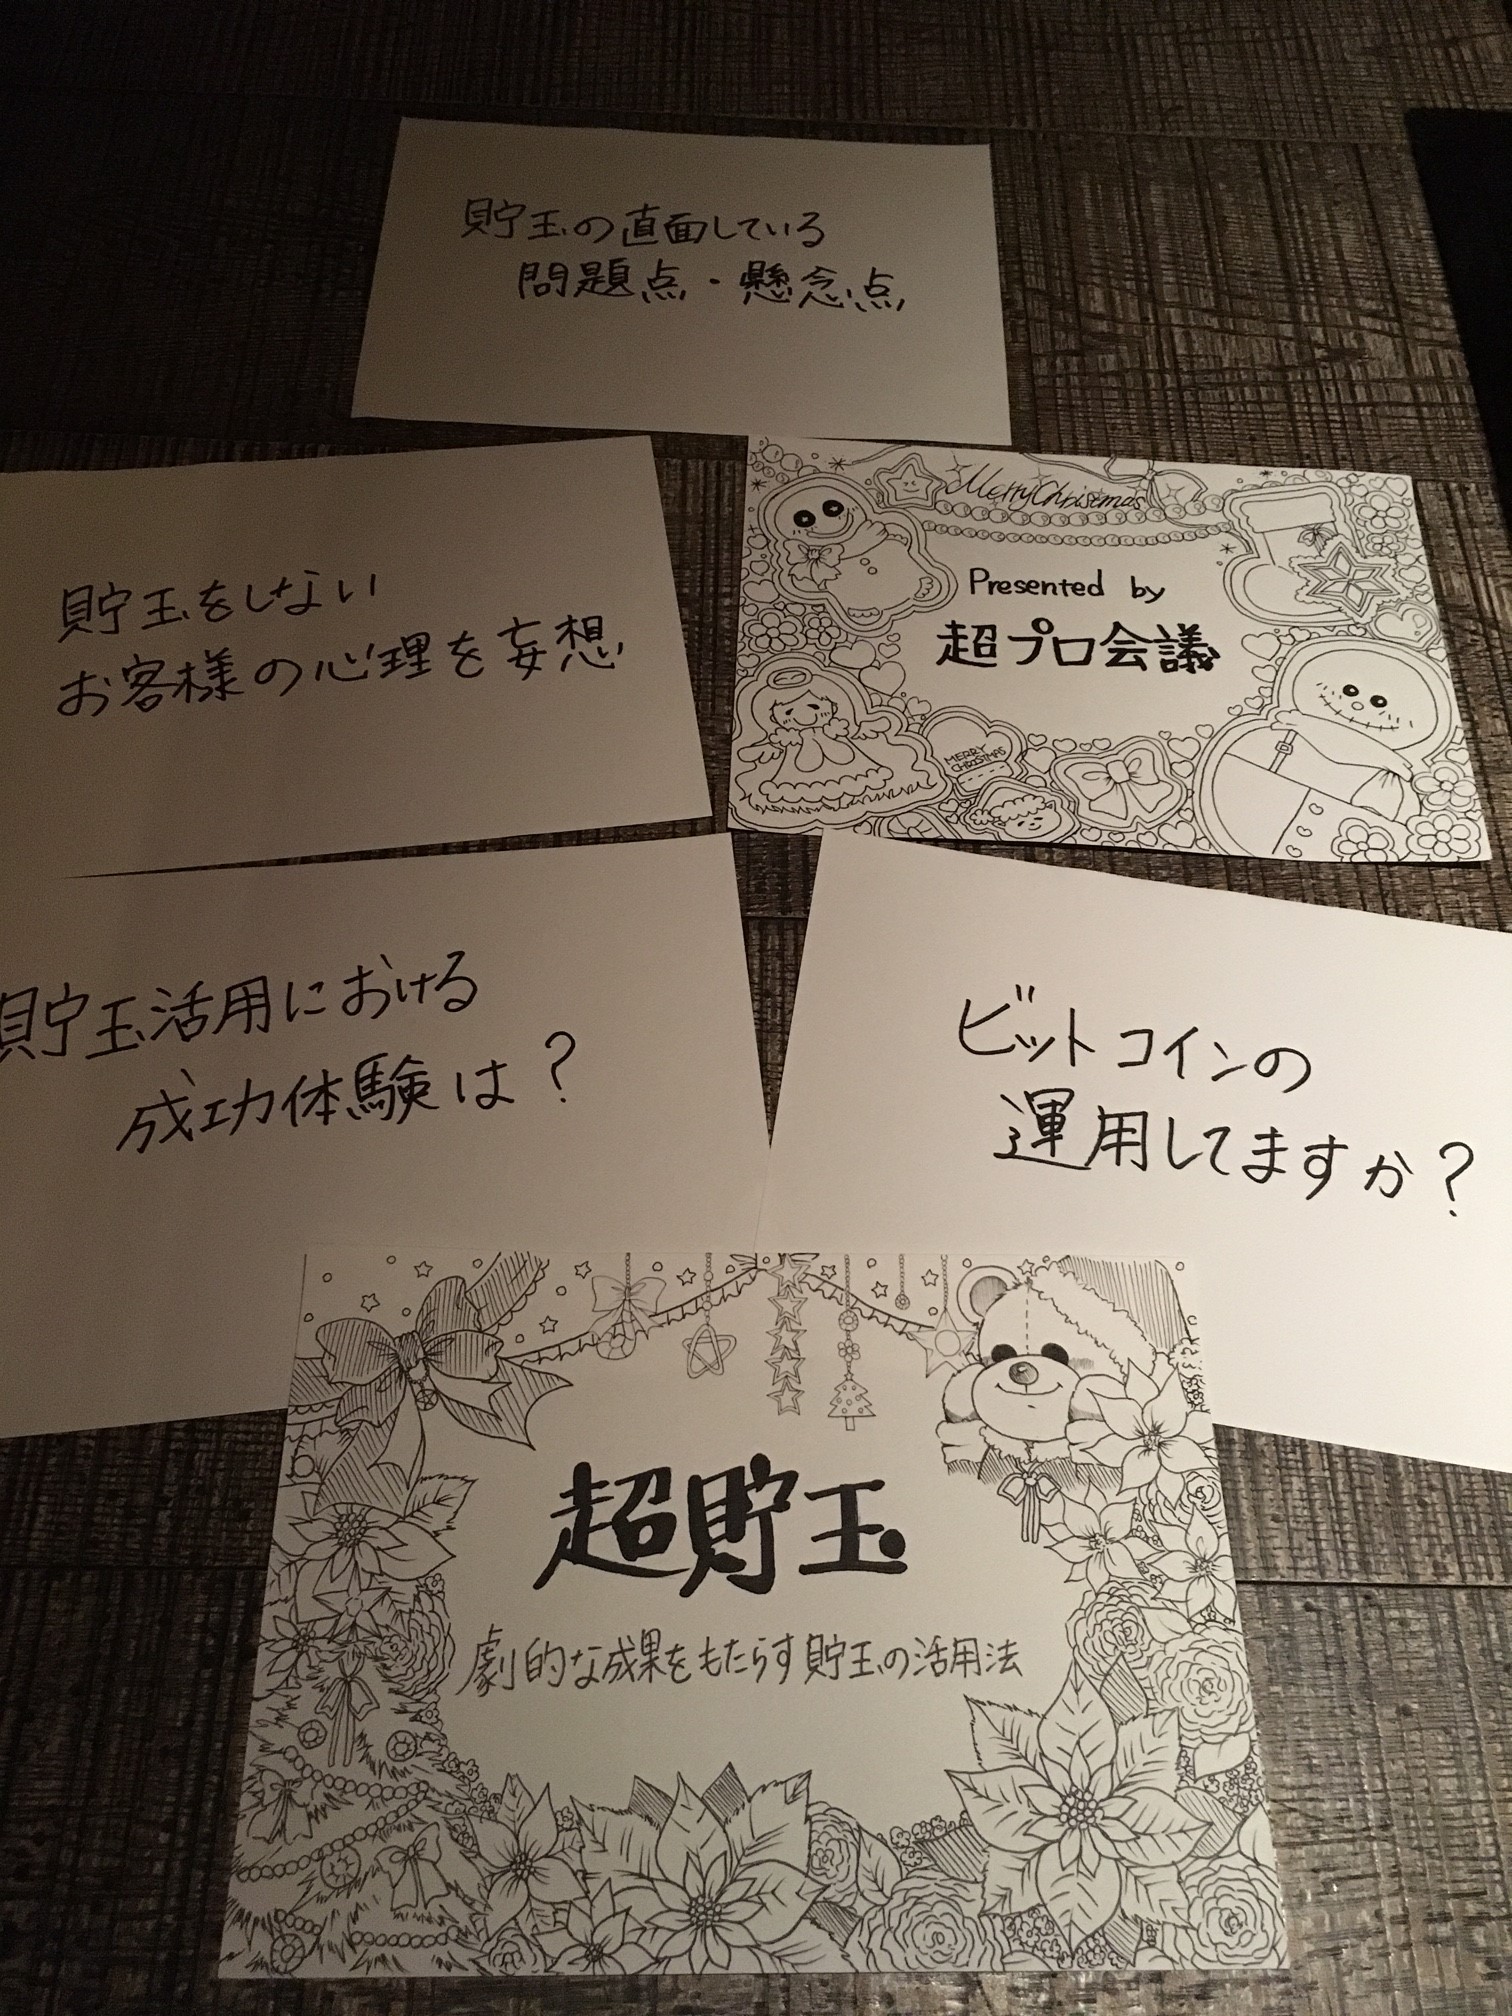 貯玉の直面している
問題点・懸念点
貯玉をしない
お客様の心理を妄想
Merry Christmas
Presented by
超プロ会議
MERRY
CHRISTMAS
貯玉活用における
成功体験は?
ビットコインの
運用してますか?
超貯玉
劇的な成果をもたらす貯玉の活用法